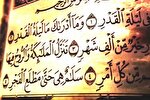 فِي لَيْلَةِ ٱلْقَدْرِ ۝١ وَمَآ أَدْرَىٰكَ مَا لَيْلَةُ
ٱلْقَدْرِ ۝٢ لَيْلَةُ ٱلْقَدْرِ
خَيْرٌ مِّنْ أَلْفِ شَهْرٍ ۝٣ تَنَزَّلُ ٱلْمَلَٰٓئِكَةُ وَٱلرُّوحُ فِيهَا
مِّن كُلِّ أَمْرٍ ۝٤ سَلَٰمٌ هِيَ حَتَّىٰ مَطْلَعِ ٱلْفَجْرِ